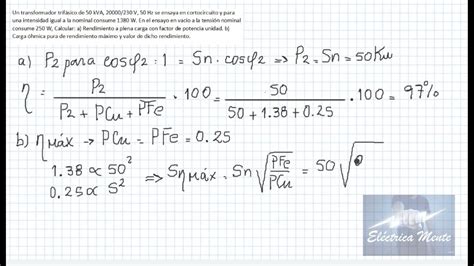 Un transformador trifásico de 50 kVA, 20000/230 V, 50 Hz se ensaya en cortocircuito y para
una intensidad igual a la nominal consume 1380 W. En el ensayo en vacío a la tensión nominal
consume 250 W, Calcular: a) Rendimiento a plena carga con factor de potencia unidad. b)
Carga óhmica pura de rendimiento máximo y valor de dicho rendimiento.
a) P2 para cosφ2 = 1 = Sn · cosφ2 => P2 = Sn = 50Kw
η = P2 / (P2 + PCu + PFe) · 100 = 50 / (50 + 1.38 + 0.25) · 100 = 97%
b) η máx → PCu = PFe = 0.25
1.38 ∝ 50²
0.25 ∝ S² => Sη máx = Sn √(PFe/PCu) = 50 √
Eléctrica Mente